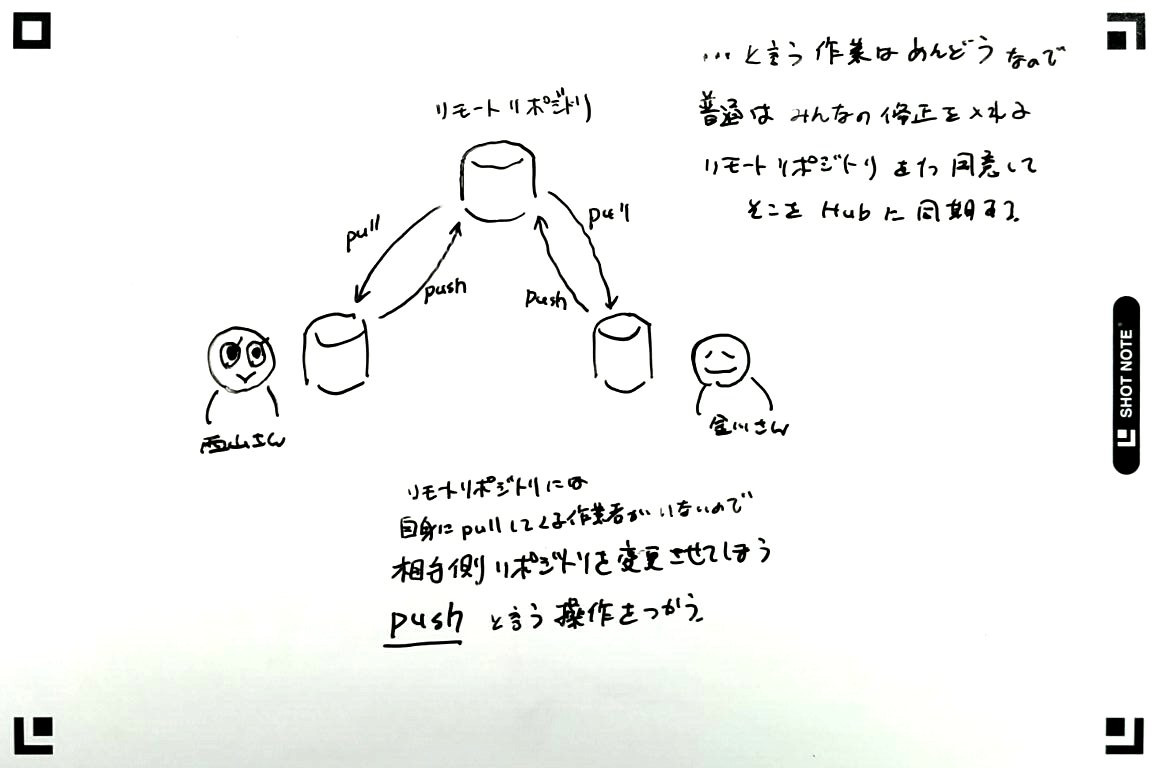 …と言う作業はめんどうなので
普通はみんなの修正を入れる
リモートリポジトリを1つ用意して
そこを Hub に同期する。
リモートリポジトリ
pull
pull
push
push
西山さん
金川さん
リモートリポジトリには
自身に pull してくる作業者がいないので
相手側リポジトリを変更させてしまう
push と言う操作をつかう。
SHOT NOTE